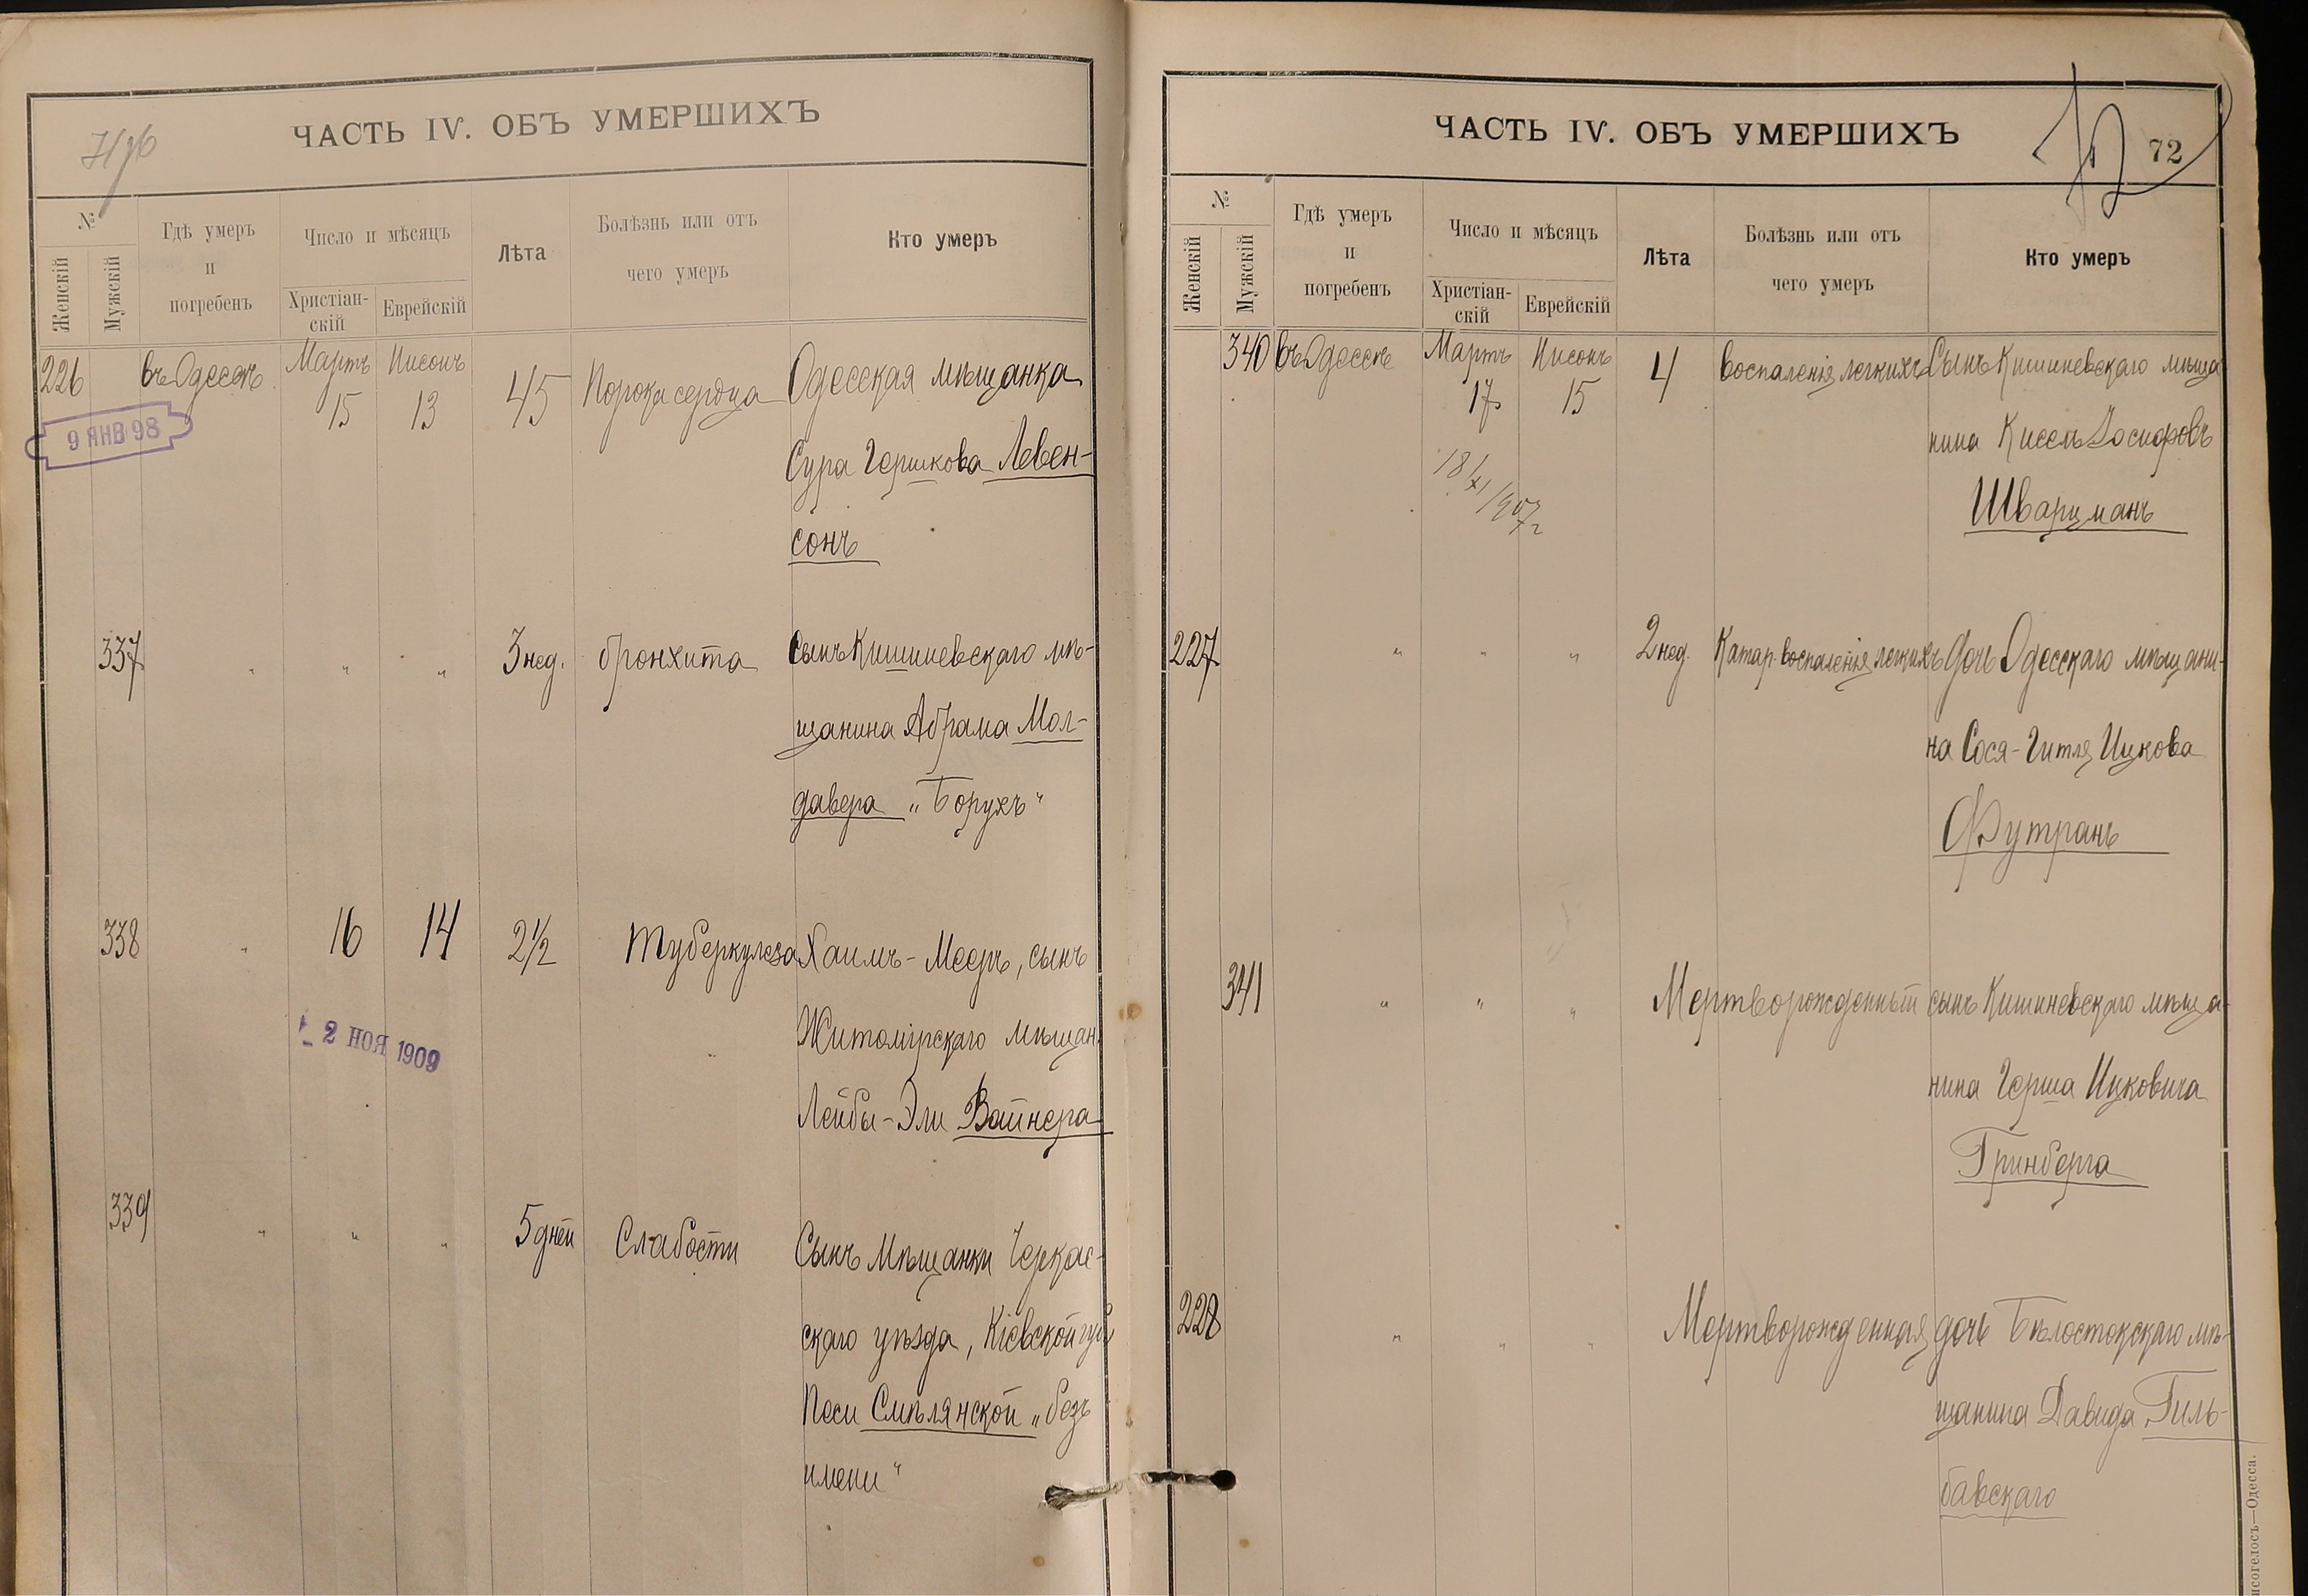 ЧАСТЬ IV. ОБЪ УМЕРШИХЪ
№
Женскій
Мужскій
Гдѣ умеръ
и
погребенъ
Число и мѣсяцъ
Христіан-
скій
Еврейскій
Лѣта
Болѣзнь или отъ
чего умеръ
Кто умеръ
226 въ Одессѣ Мартъ 15 Нисонъ 13 45 Порока сердца Одесская мѣщанка
9 ЯНВ 98
Сура Гершкова Левен-
сонъ
337 " " " 3 нед. бронхита сынъ Кишиневскаго мѣ-
щанина Абрама Мол-
давера „Борухъ“
338 " 16 14 2½ туберкулеза Хаимъ-Мееръ, сынъ
2 НОЯ 1909
Житомірскаго мѣщан.
Лейбы-Эли Вайнера
339 " " " 5 дней Слабости Сынъ мѣщанки Черкас-
скаго уѣзда, Кіевской губ
Песи Смѣлянской „безъ
имени“
ЧАСТЬ IV. ОБЪ УМЕРШИХЪ
72
№
Женскій
Мужскій
Гдѣ умеръ
и
погребенъ
Число и мѣсяцъ
Христіан-
скій
Еврейскій
Лѣта
Болѣзнь или отъ
чего умеръ
Кто умеръ
340 въ Одессѣ Мартъ 17 Нисонъ 15 4 воспаленія легкихъ Сынъ Кишиневскаго мѣща
нина Кисель Іосифовъ
18/XI/907 г
Шварцманъ
227 " " " 2 нед. Катар. воспаленія легкихъ дочь Одесскаго мѣщани-
на Сося-Гитля Ицкова
Футранъ
341 " " " Мертворожденный сынъ Кишиневскаго мѣща-
нина Герша Ицковича
Гринберга
228 " " " Мертворожденная дочь Бѣлостокскаго мѣ-
щанина Давида Гиль-
бавскаго
—Одесса.